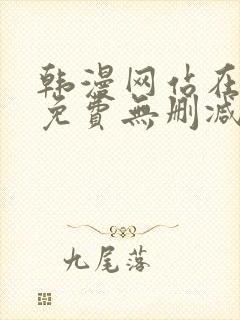 韩漫网站在
免費無删减
九尾落